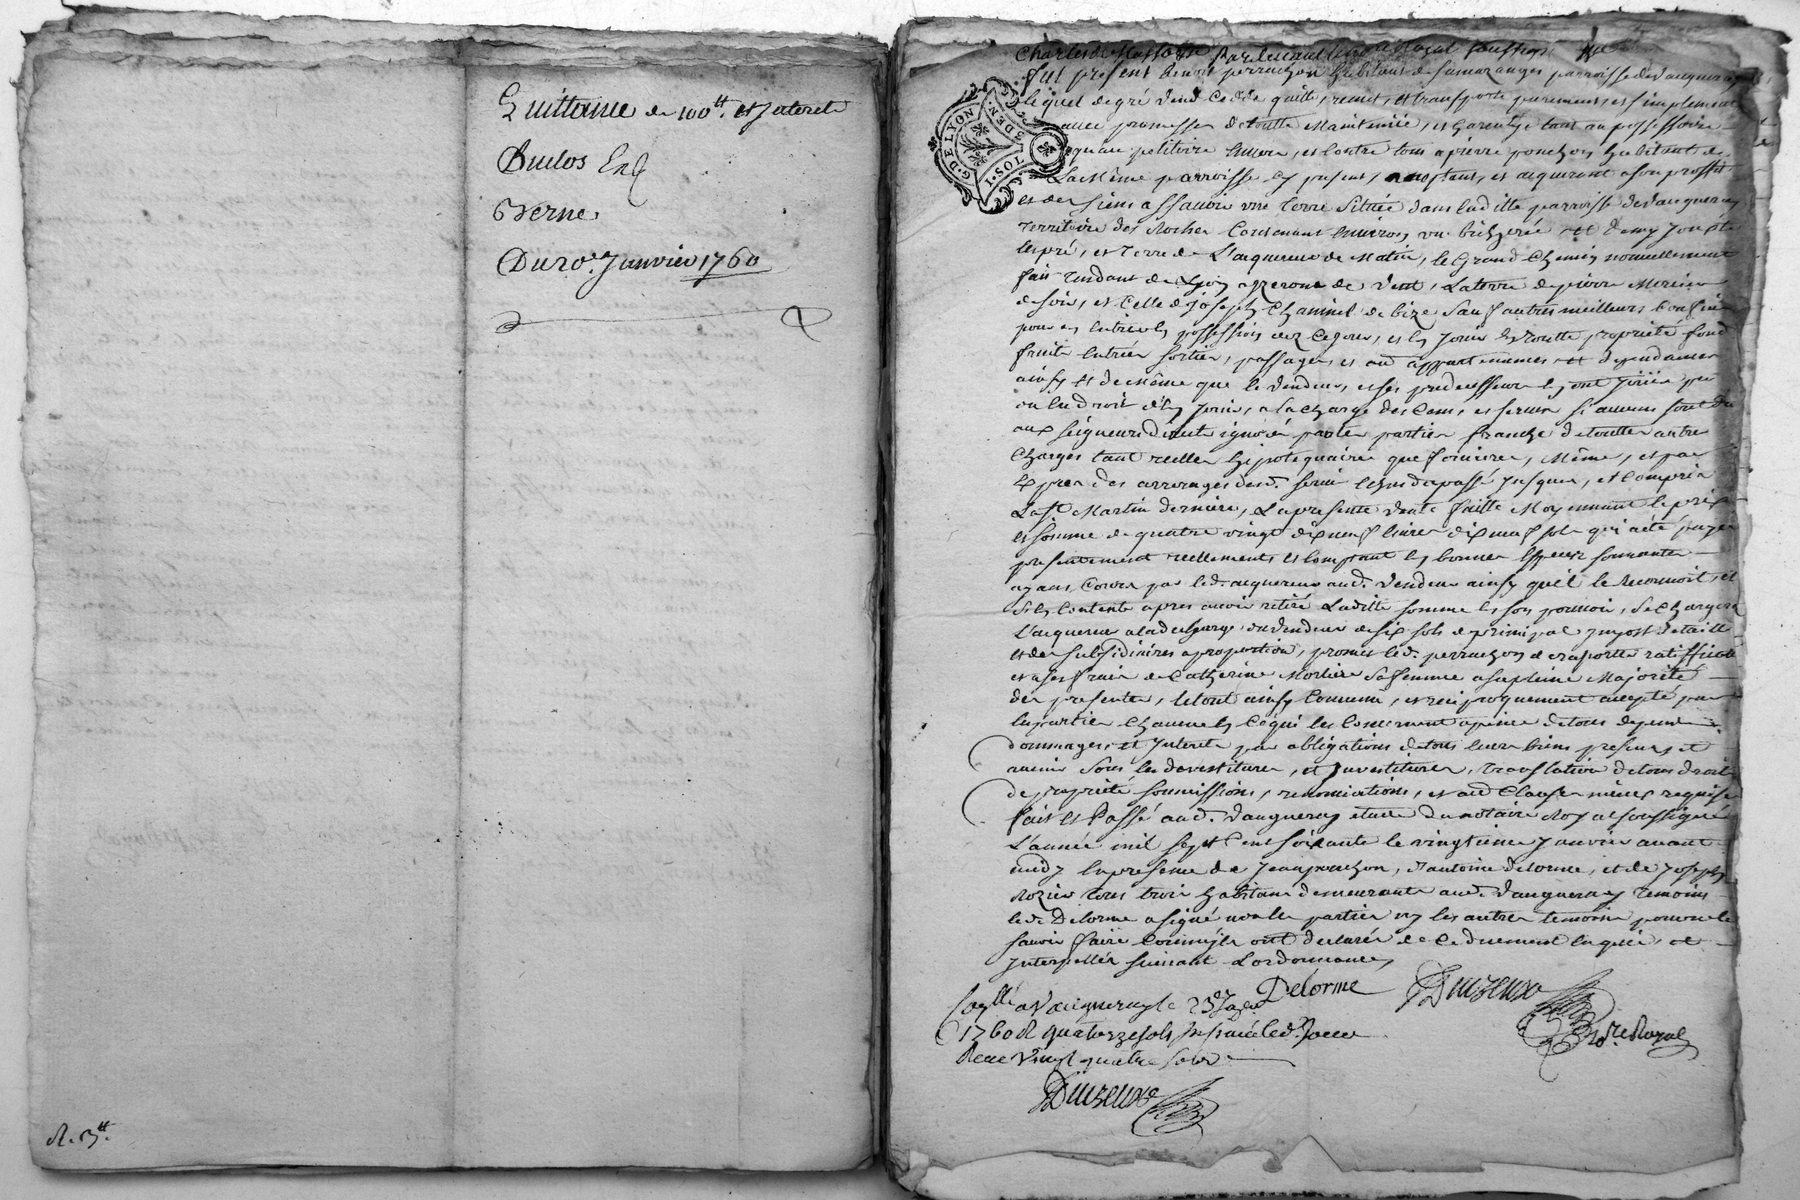 Quittance de 100tt. et Interets
Duclos
Verne
Du 20e. Janvier 1760
R. 3tt.
G. DE LYON
I. SOL 3 DEN.
fut present Benoit perrachon habitant de parroisse de Vaugneray
lequel de gré vend cedde quitte, remet, et transporte purement, et simplement
avec promesse de toutte Maintenüe, et Garentye tant au possessoire
qu'au petitoire Envers, et Contre tous a pierre ponchon habitant de
La Même parroisse Cy present, acceptant, et acquerant a son proffit
et des siens a sçavoir une terre Située dans laditte parroisse de Vaugneray
territoire des Rocher Contenant Environ une bicherée et demy Jouxte
les pré, et terre de L'acquereur de Matin, le Grand Chemin nouvellement
fait tendant de Lyon a yzerone de Vent, La terre de pierre
de soir, et Celle de Joseph de bize Sauf autres meilleurs Confins
pour en Entrer en possession dez Ce jour, et En Jouir En toutte proprieté fond
fruits Entrées sorties, passages, et aux appartenances et dependances
ainsy et de Même que le Vendeur, et ses predecesseurs En ont Joüy pû
ou eu droit d'En Jouir, a la charge des Cens, et servis si aucuns sont dû
aux seigneurs directs ignorés par les parties franche de touttes autres
Charges tant reelles hipotequaires que foncieres, Même, et par
Exprès des arrerages desd. servis Echus du passé Jusques, et Compris
La St. Martin derniere, La presente Vente faitte Moyennant le prix
et somme de quatre vingt dix neuf livres dix neuf sols qui a été payée
presentement reellement et Comptant En bonnes Especes sonnantes
ayans Cours par led. acquereur aud. Vendeur ainsy qu'il le Reconnoit, et
s'En Contente apres avoir retiré Laditte somme En son pouvoir, se Chargera
L'acquereur a la decharge du Vendeur de six sols de principal impost de taille
et des subsidiaires a proportion, promet led. perrachon de rapporter ratiffication
et a ses frais de Catherine Mortier sa femme a sa pleine Majorité
des presentes, le tout ainsy Convenu, et reciproquement accepté par
les parties Chacune En Ce qui les Concernent a peine de tous depens
dommages, et Interets par obligations de tous leurs biens presents, et
avenir Sous les devestitures, et Investitures, translation de tous droits
de proprieté soumissions, renonciations, et aux Clauses même requises
fait et Passé aud. Vaugneray etude du notaire Royal soussigné
L'année mil sept Cent soixante le vingtieme Janvier avant
midy En presence de Jean ponchon, d'antoine Delorme, et de Joseph
Rozier tous trois habitans demeurants aud. Vaugneray temoins
led. Delorme a signé non les parties ny les autres temoins pour ne le
savoir faire Comm'ils ont declarés de Ce duement Enquis, et
Interpellés suivant L'ordonnance
Delorme
Conllé a Vaugneray le 23e. Janv.
1760 R quatorze sols
Reçu Vingt quatre sols
No.re Royal